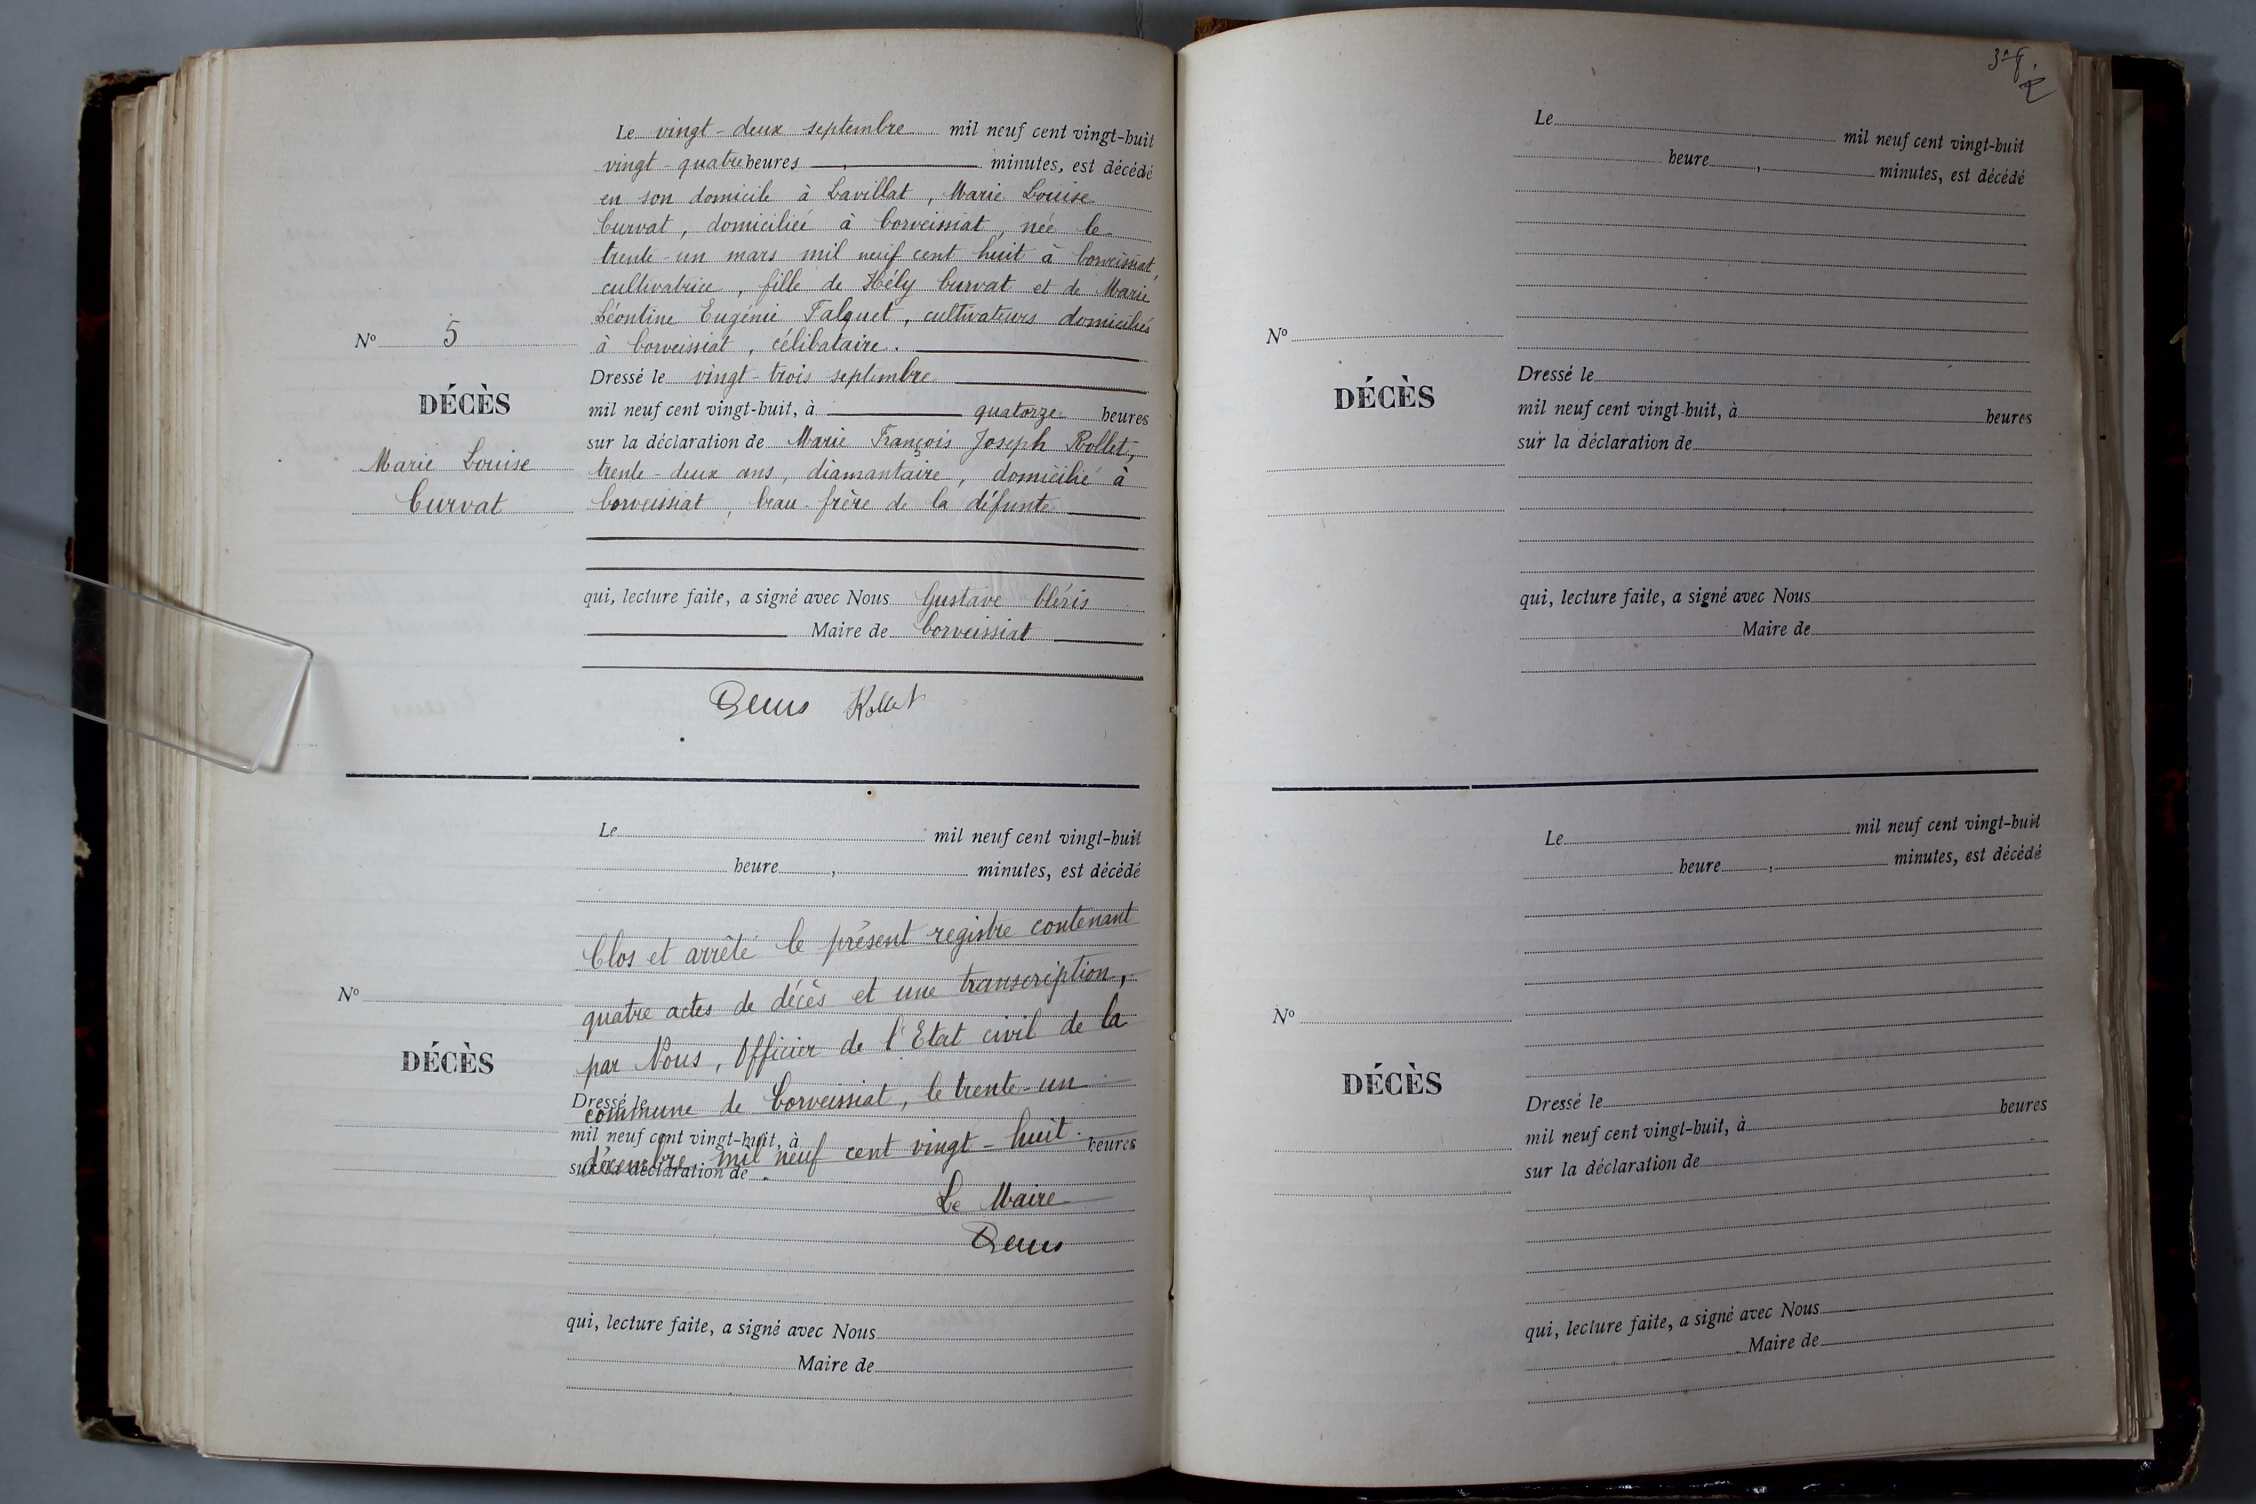 Le vingt-deux septembre mil neuf cent vingt-huit
vingt-quatre heures , minutes, est décédé
en son domicile à Lavillat, Marie Louise
Curvat, domiciliée à Corveissiat, née le
trente-un mars mil neuf cent huit à Corveissiat,
cultivatrice, fille de Hély Curvat et de Marie
Léontine Eugénie Falquet, cultivateurs domiciliés
à Corveissiat, célibataire.
Nº 5
DÉCÈS
Marie Louise
Curvat
Dressé le vingt-trois septembre
mil neuf cent vingt-huit, à quatorze heures
sur la déclaration de Marie François Joseph Rollet,
trente-deux ans, diamantaire, domicilié à
Corveissiat, beau-frère de la défunte
qui, lecture faite, a signé avec Nous Gustave Cléris
Maire de Corveissiat
Rollet
Le mil neuf cent vingt-huit
heure , minutes, est décédé
Clos et arrêté le présent registre contenant
quatre actes de décès et une transcription,
par Nous, Officier de l'Etat civil de la
Nº
DÉCÈS
Dressé le
commune de Corveissiat, le trente-un
mil neuf cent vingt-huit, à heures
décembre mil neuf cent vingt-huit.
sur la déclaration de
Le Maire
qui, lecture faite, a signé avec Nous
Maire de
Le mil neuf cent vingt-huit
heure , minutes, est décédé
Nº
DÉCÈS
Dressé le
mil neuf cent vingt-huit, à heures
sur la déclaration de
qui, lecture faite, a signé avec Nous
Maire de
Le mil neuf cent vingt-huit
heure , minutes, est décédé
Nº
DÉCÈS
Dressé le
mil neuf cent vingt-huit, à heures
sur la déclaration de
qui, lecture faite, a signé avec Nous
Maire de